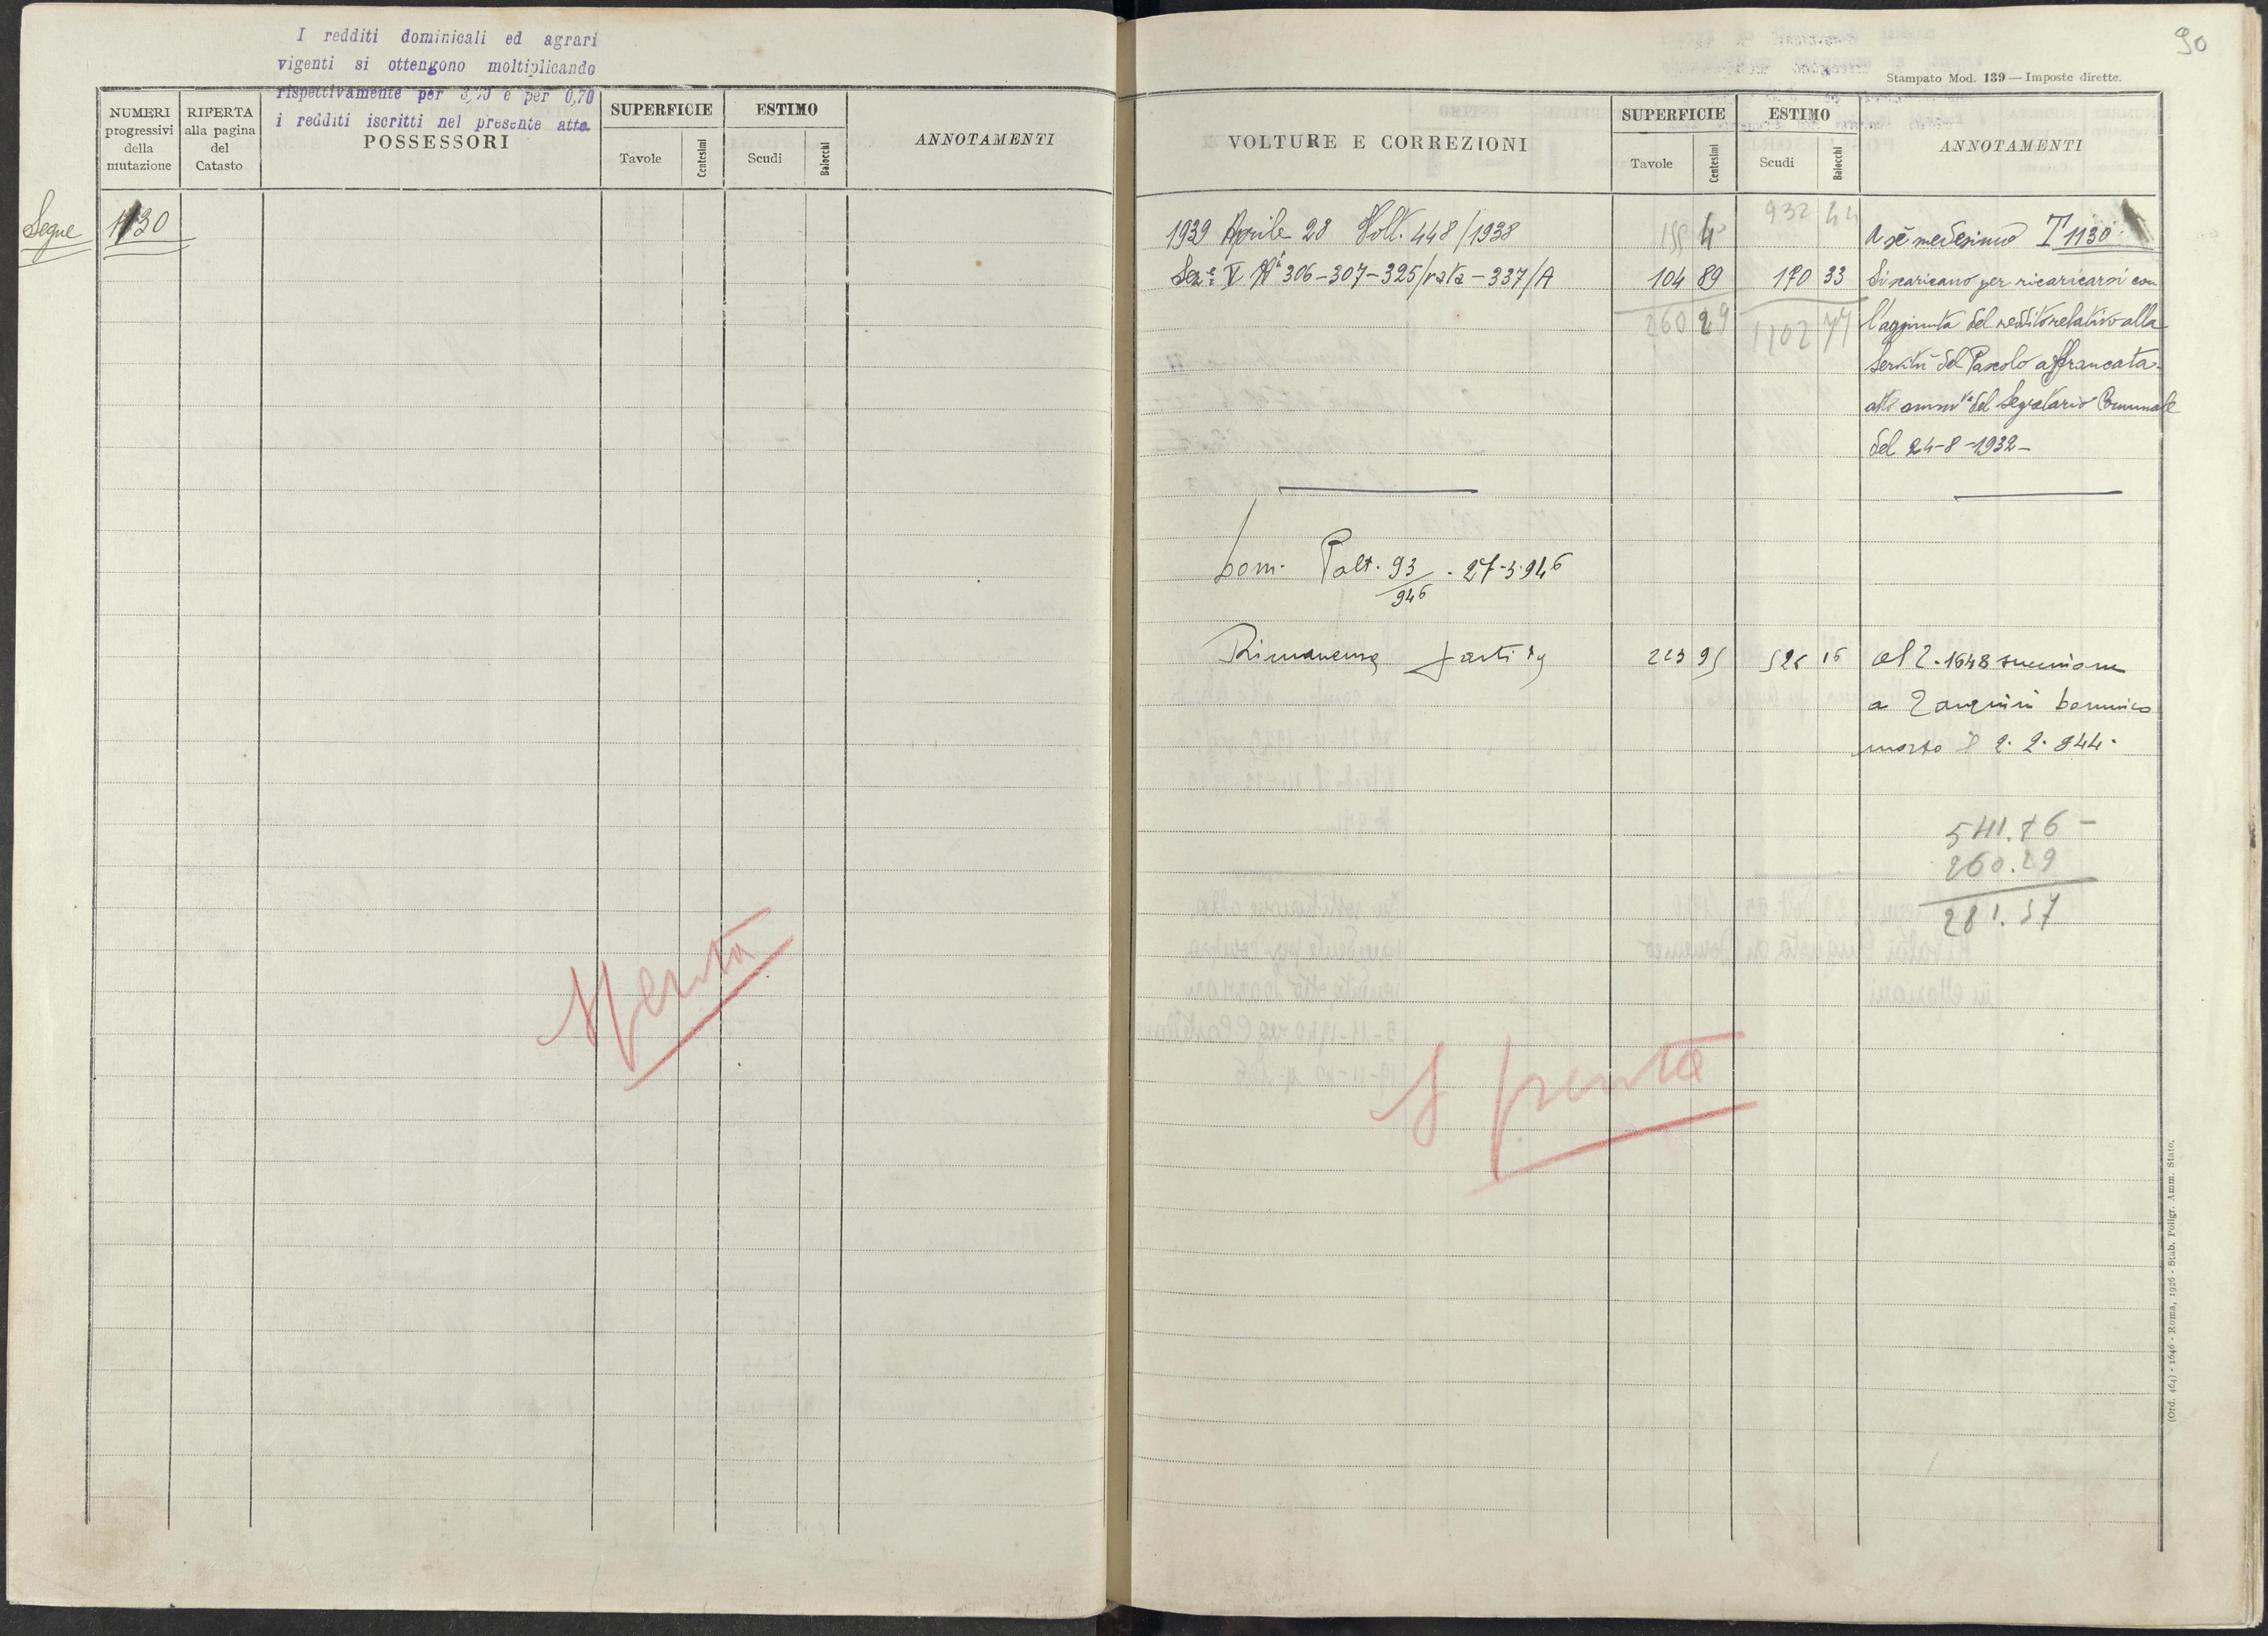 I redditi dominicali ed agrari
vigenti si ottengono moltiplicando
rispettivamente per 3,70 e per 0,70
i redditi iscritti nel presente atto.
NUMERI
progressivi
della
mutazione
RIFERTA
alla pagina
del
Catasto
POSSESSORI
SUPERFICIE
Tavole
Centesimi
ESTIMO
Scudi
Baiocchi
ANNOTAMENTI
Segue 1130
Spenta
90
Stampato Mod. 139 — Imposte dirette.
VOLTURE E CORREZIONI
SUPERFICIE
Tavole
Centesimi
ESTIMO
Scudi
Baiocchi
ANNOTAMENTI
932 44
1939 Aprile 28 Volt. 448/1938 155 40 A sé medesimo T 1130
Sez.e V Ni 306-307-325/rata-337/A 104 89 170 33 Si scaricano per ricaricarsi con
260 29 1102 77 l'aggiunta del reddito relativo alla
Servitù del Pascolo affrancata
atto ammvo del Segretario Comunale
del 24-8-1932-
Volt. 93/946 . 27-5-946
Rimanenza partita 223 95 526 16 al 2.1648 successione
a Zanquini
morto il 2.2.944.
541.86 -
260.29
281.57
Spenta
(Ord. 464) - 1646 - Roma, 1926 - Stab. Poligr. Amm. Stato.